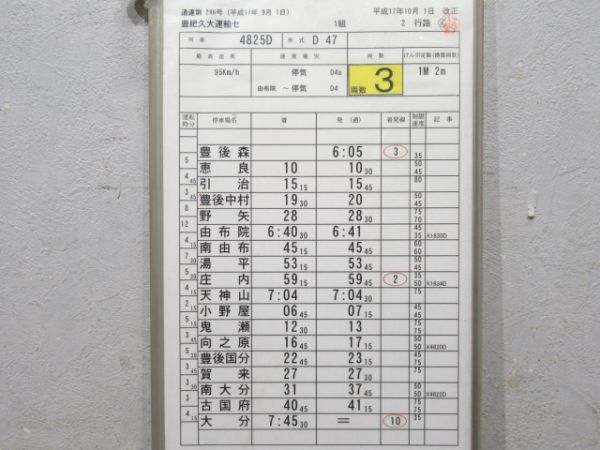 運運第 296号 (平成17年 9月 1日) 平成17年10月 1日 改正
豊肥久大運輸セ 1組 2 行路
列車 4825D 形式 D 47
最高速度 速度種別 両数 けん引定数(換算両数)
95Km/h 停気 D4a 両数 3 1M 2m
由布院 ～ 停気 D4
運転時分 停車場名 着 発(通) 着発線 制限速度 記事
豊後森 6:05 3 35
5
恵良 10 10 30 50 45
4 45
引治 15 15 15 45 80
3 45
豊後中村 19 30 20 50 45
8
野矢 28 28 30 75 70
12
由布院 6:40 30 6:41 45 35 X1830D
4 15
南由布 45 15 45 45 60 60
7 30
湯平 53 15 53 45 45
5 30
庄内 59 15 59 45 2 35 50 X1834D
4 15
天神山 7:04 7:04 30 75
2 15
小野屋 06 45 07 15 50 45
5 15
鬼瀬 12 30 13 75 75
3 45
向之原 16 45 17 15 50 50 X4820D
5 30
豊後国分 22 45 23 15 75
3 45
賀来 27 27 30 75
3 30
南大分 31 37 45 50 50 X4822D
3
古国府 40 45 41 15 75 75
4 15
大分 7:45 30 = 10 35